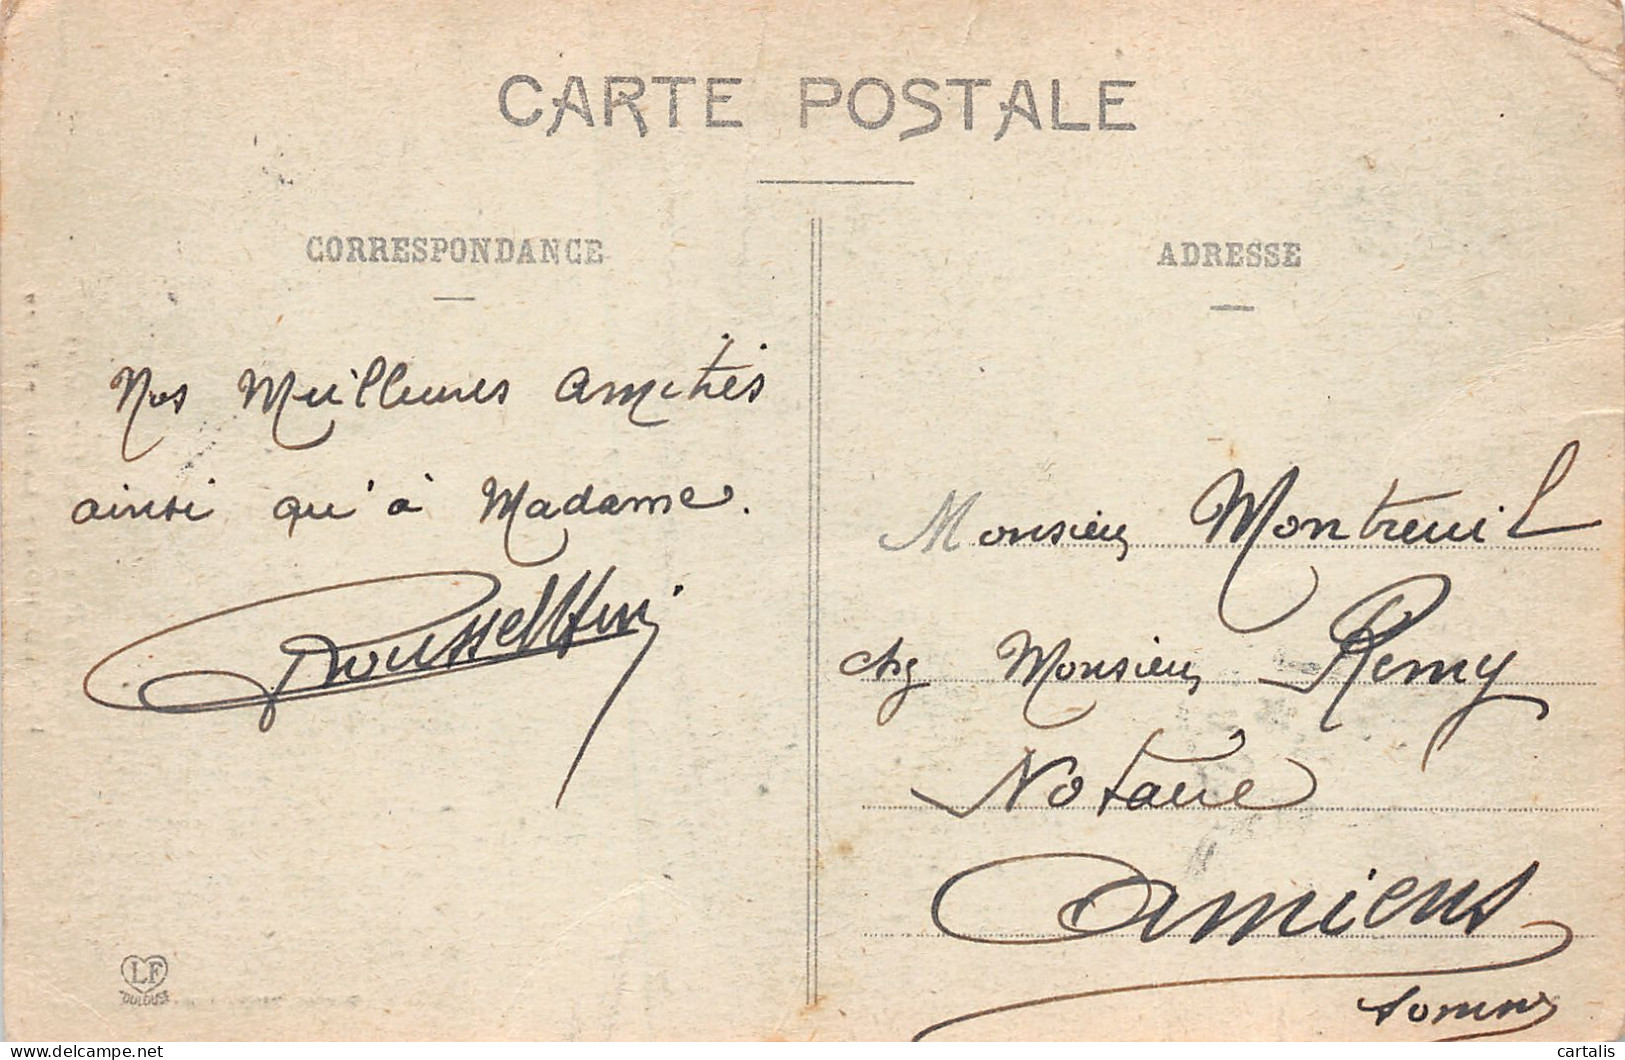 CARTE POSTALE
CORRESPONDANCE
Nos Meilleures amitiés
ainsi qu'à Madame.
ADRESSE
Monsieur Montreuil
chez Monsieur Remy
Notaire
Amiens
Somme
LF
TOULOUSE
delcampe.net
cartalis